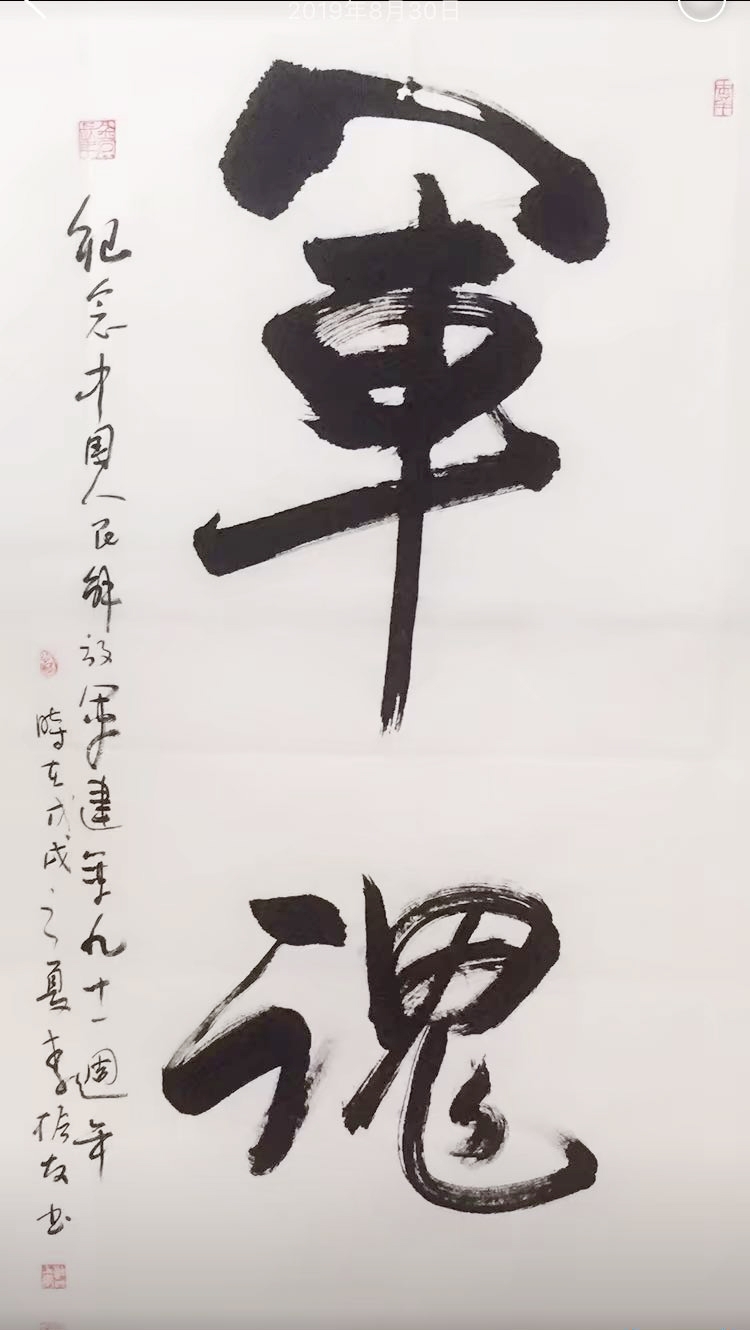 2019年8月30日
軍魂
紀念中国人民解放軍建軍九十一週年
時在戊戌之夏李
书